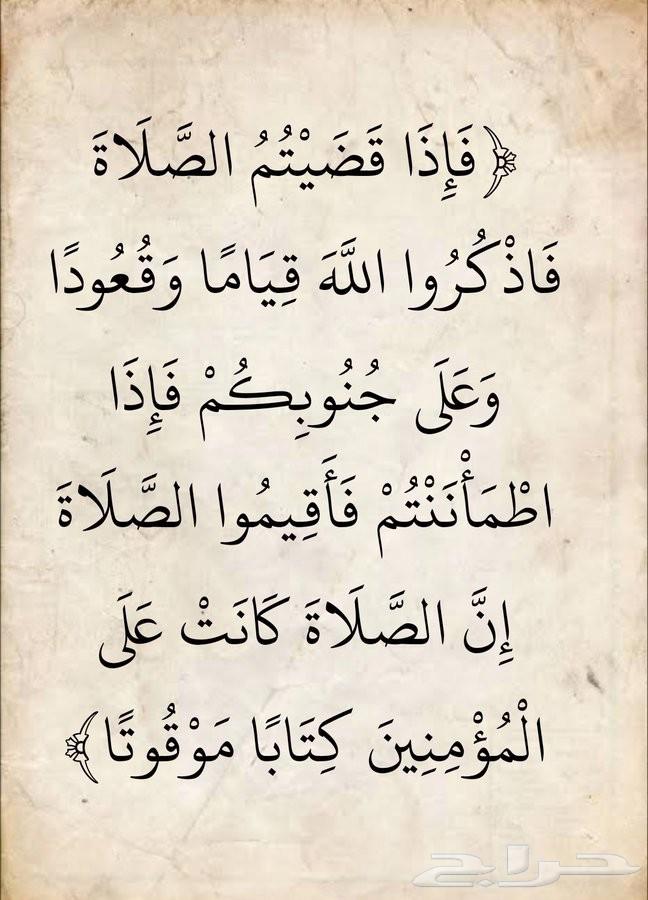 ﴿فَإِذَا قَضَيْتُمُ الصَّلَاةَ
فَاذْكُرُوا اللَّهَ قِيَامًا وَقُعُودًا
وَعَلَى جُنُوبِكُمْ فَإِذَا
اطْمَأْنَنْتُمْ فَأَقِيمُوا الصَّلَاةَ
إِنَّ الصَّلَاةَ كَانَتْ عَلَى
الْمُؤْمِنِينَ كِتَابًا مَوْقُوتًا﴾
حراج